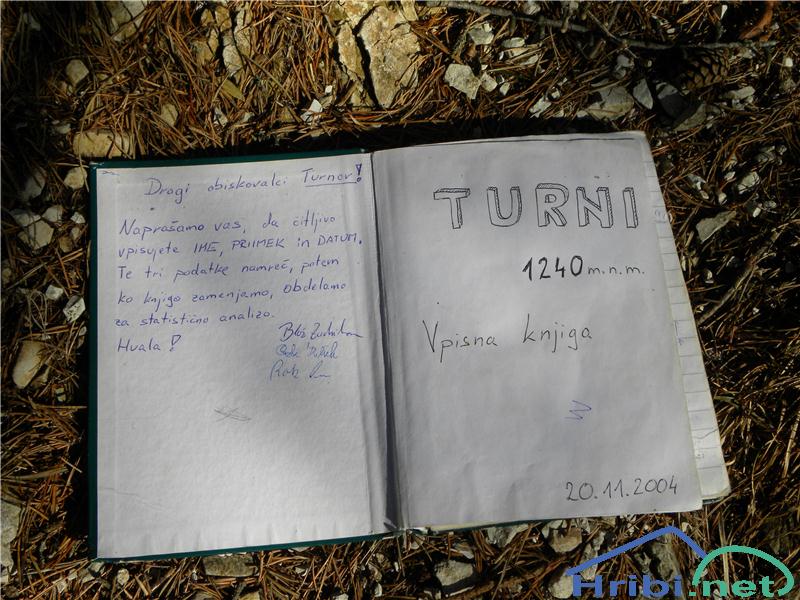 Dragi obiskovalci Turnov!
Naprašamo vas, da čitljivo
vpisujete IME, PRIIMEK in DATUM.
Te tri podatke namreč, potem
ko knjigo zamenjamo, obdelamo
za statistično analizo.
Hvala!
TURNI
1240 m.n.m.
Vpisna knjiga
20.11.2004
Hribi.net